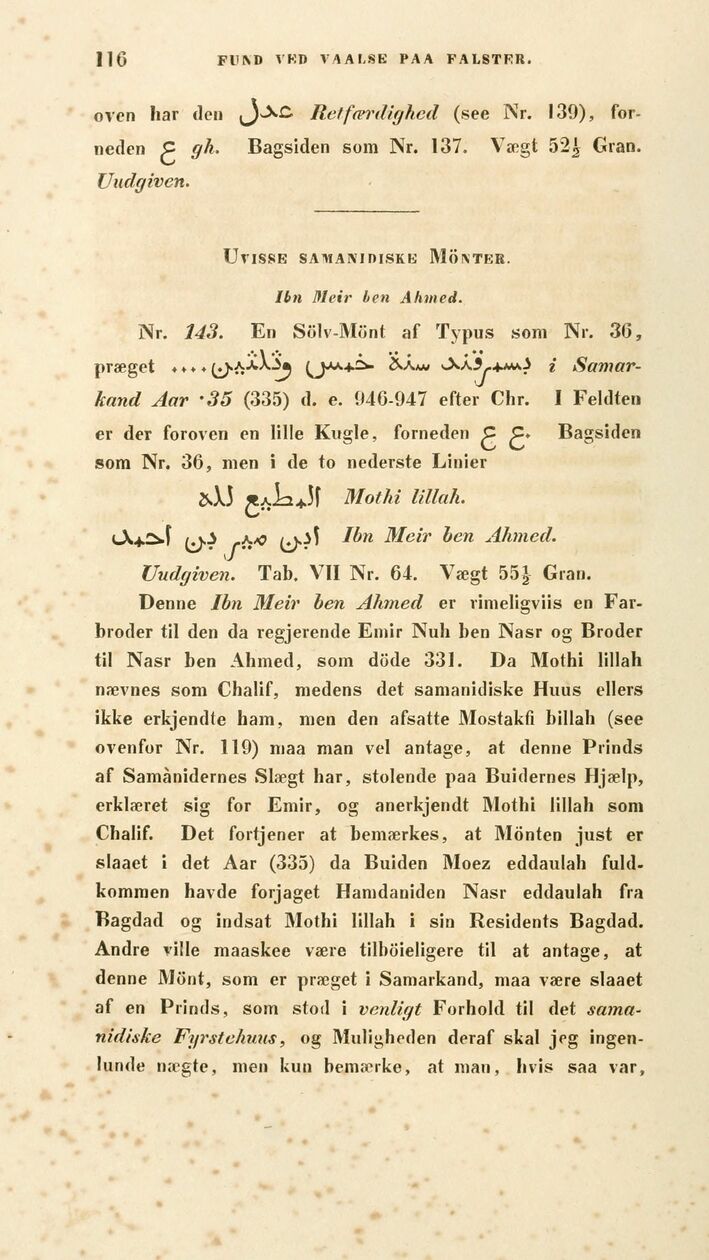 116 FUND VED VAALSE PAA FALSTER.
oven har den عدل Retfærdighed (see Nr. 139), for-
neden غ gh. Bagsiden som Nr. 137. Vægt 52½ Gran.
Uudgiven.
UVISSE SAMANIDISKE MÖNTER.
Ibn Meir ben Ahmed.
Nr. 143. En Sölv-Mönt af Typus som Nr. 36,
præget بسمرقند سنة خمس وثلثين.... i Samar-
kand Aar *35 (335) d. e. 946-947 efter Chr. I Feldten
er der foroven en lille Kugle, forneden ع ع. Bagsiden
som Nr. 36, men i de to nederste Linier
المطيع لله Mothi lillah.
ابن مير بن احمد Ibn Meir ben Ahmed.
Uudgiven. Tab. VII Nr. 64. Vægt 55½ Gran.
Denne Ibn Meir ben Ahmed er rimeligviis en Far-
broder til den da regjerende Emir Nuh ben Nasr og Broder
til Nasr ben Ahmed, som döde 331. Da Mothi lillah
nævnes som Chalif, medens det samanidiske Huus ellers
ikke erkjendte ham, men den afsatte Mostakfi billah (see
ovenfor Nr. 119) maa man vel antage, at denne Prinds
af Samànidernes Slægt har, stolende paa Buidernes Hjælp,
erklæret sig for Emir, og anerkjendt Mothi lillah som
Chalif. Det fortjener at bemærkes, at Mönten just er
slaaet i det Aar (335) da Buiden Moez eddaulah fuld-
kommen havde forjaget Hamdaniden Nasr eddaulah fra
Bagdad og indsat Mothi lillah i sin Residents Bagdad.
Andre ville maaskee være tilböieligere til at antage, at
denne Mönt, som er præget i Samarkand, maa være slaaet
af en Prinds, som stod i venligt Forhold til det sama-
nidiske Fyrstehuus, og Muligheden deraf skal jeg ingen-
lunde nægte, men kun bemærke, at man, hvis saa var,